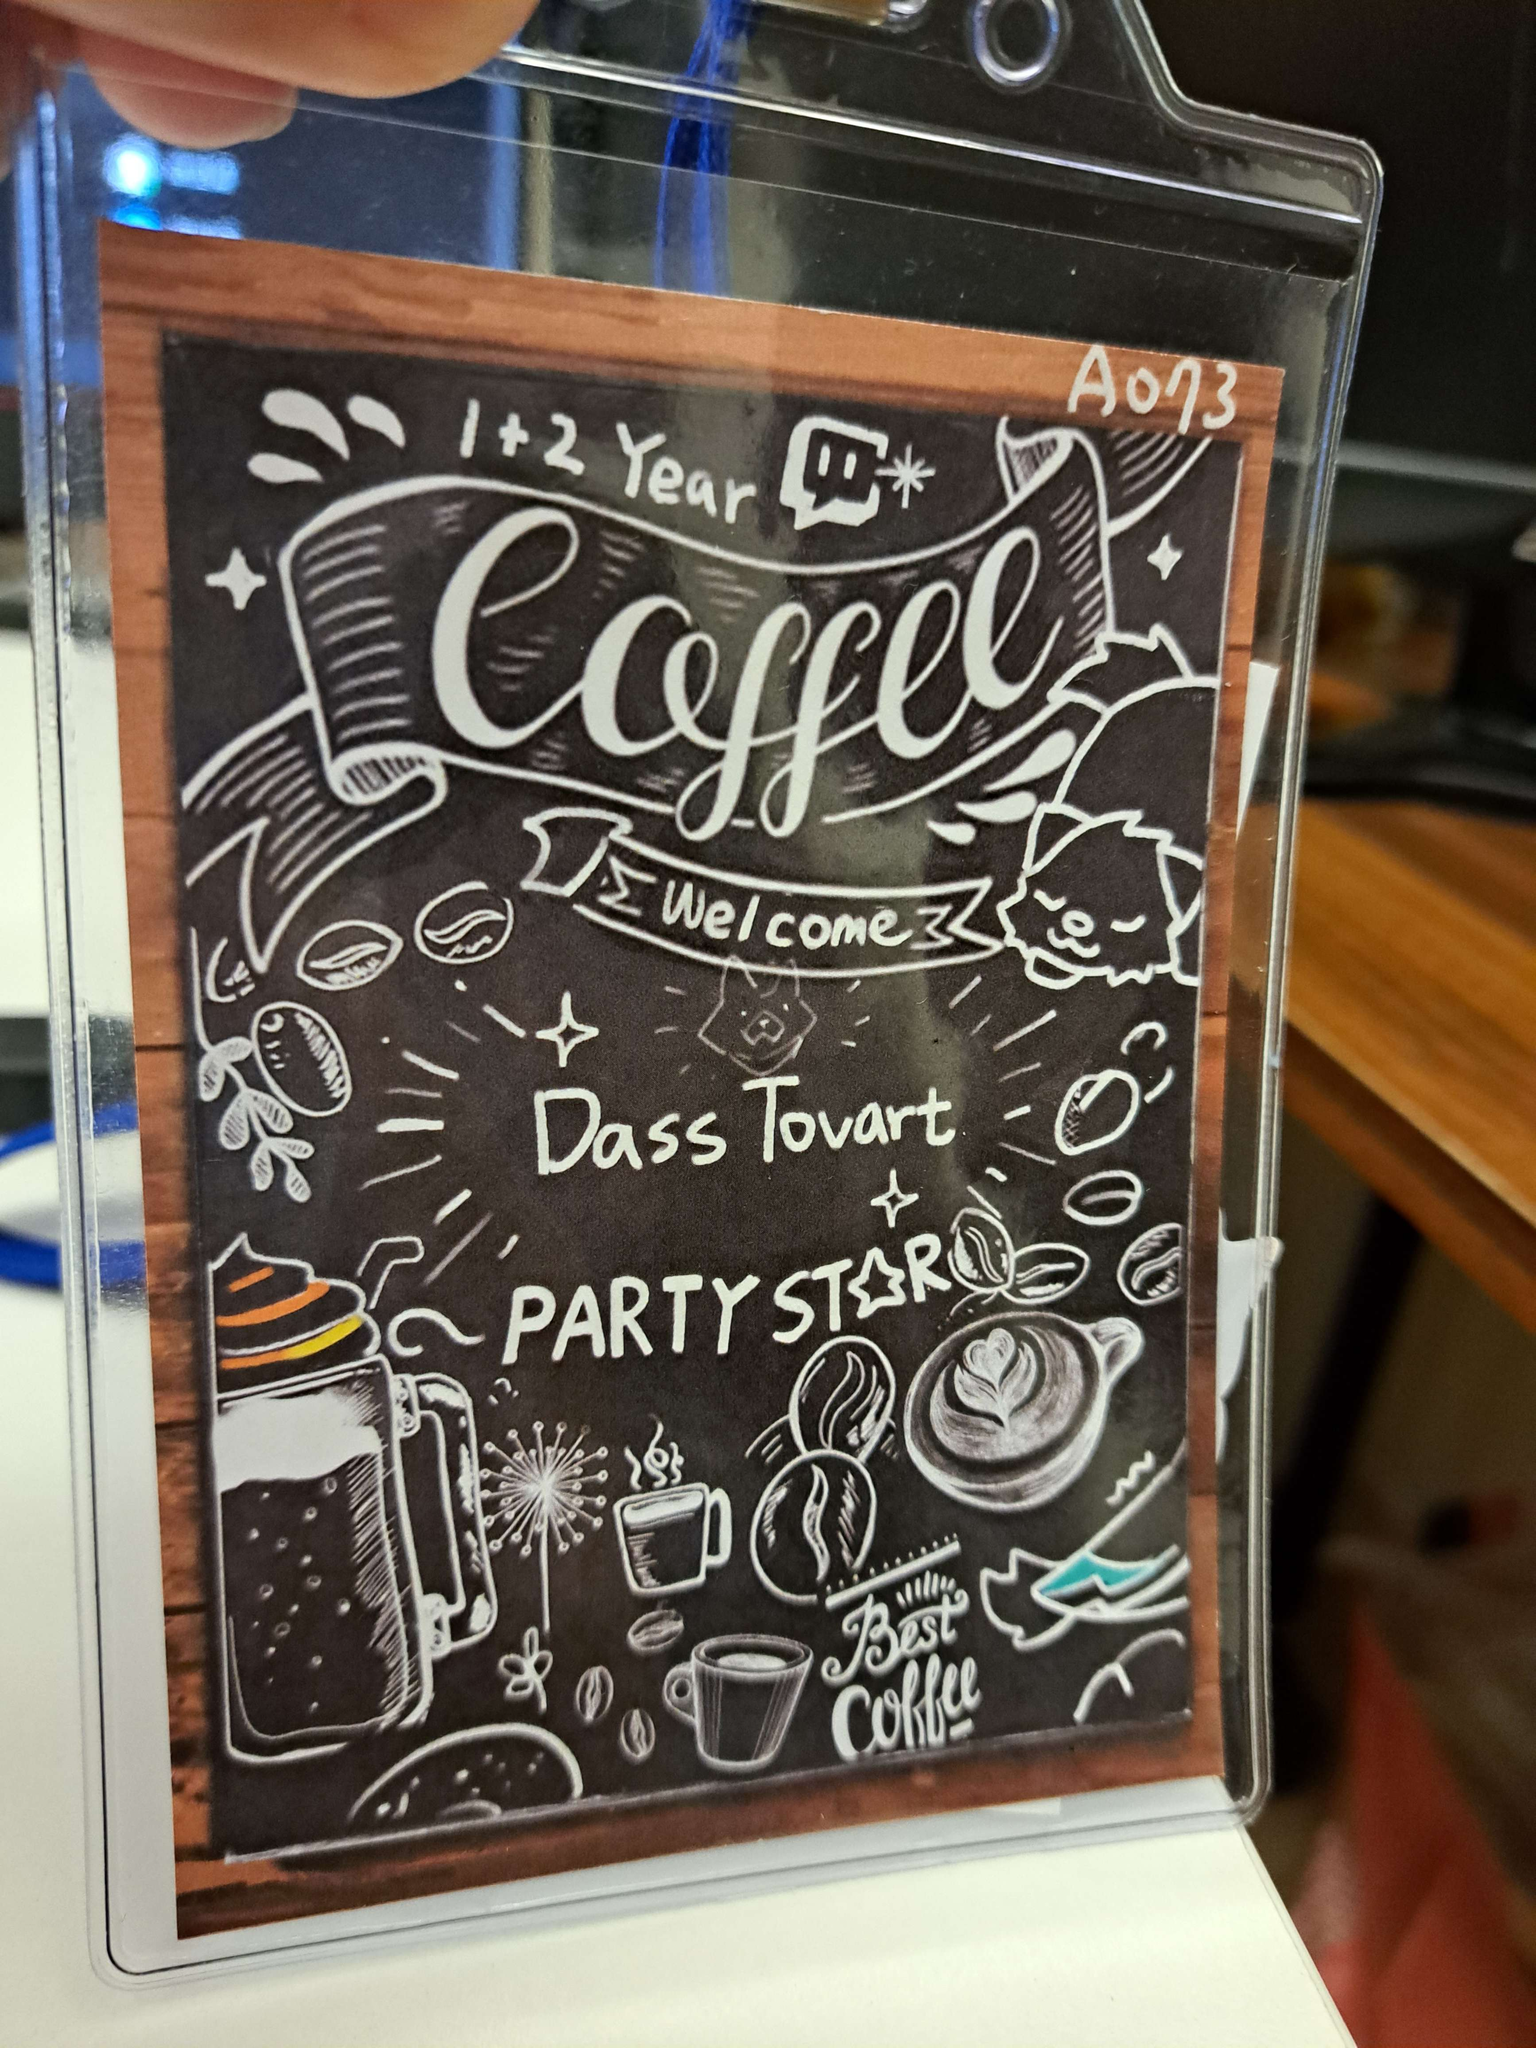 A073
1+2 Year
Coffee
Welcome
Dass Tovart
PARTY ST☆R
Best
Coffee